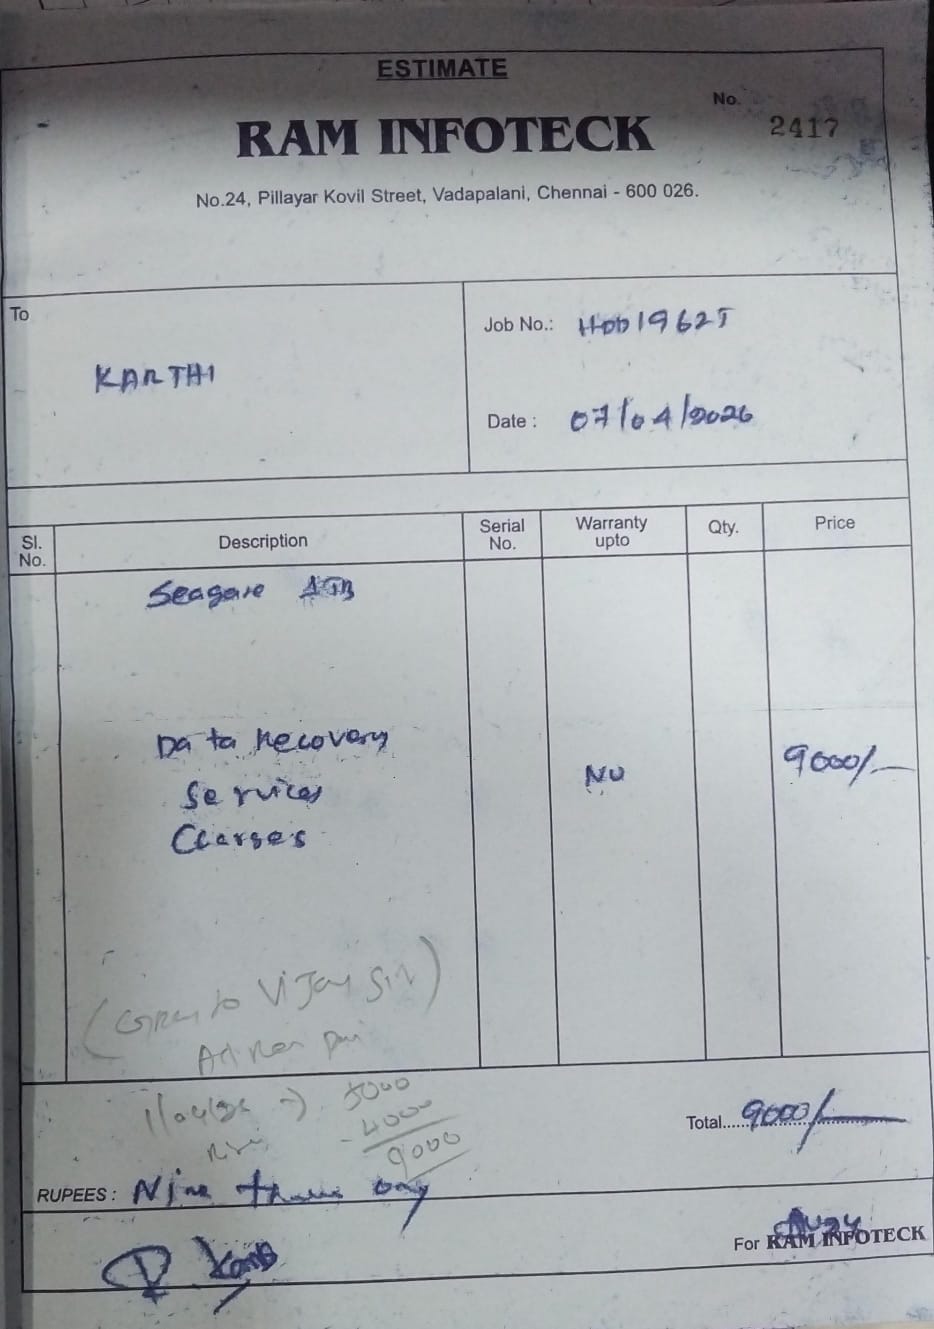 ESTIMATE
No. 2417
RAM INFOTECK
No.24, Pillayar Kovil Street, Vadapalani, Chennai - 600 026.
To
KARTHI
Job No.: HDD19625
Date : 07/04/2026
Sl. No. Description Serial No. Warranty upto Qty. Price
Seagate 1TB
Data Recovery
Services
Charges
NO 9000/-
Vijay Sir)
5000
4000
9000
Total..... 9000/-
RUPEES : Nine only
For RAM INFOTECK